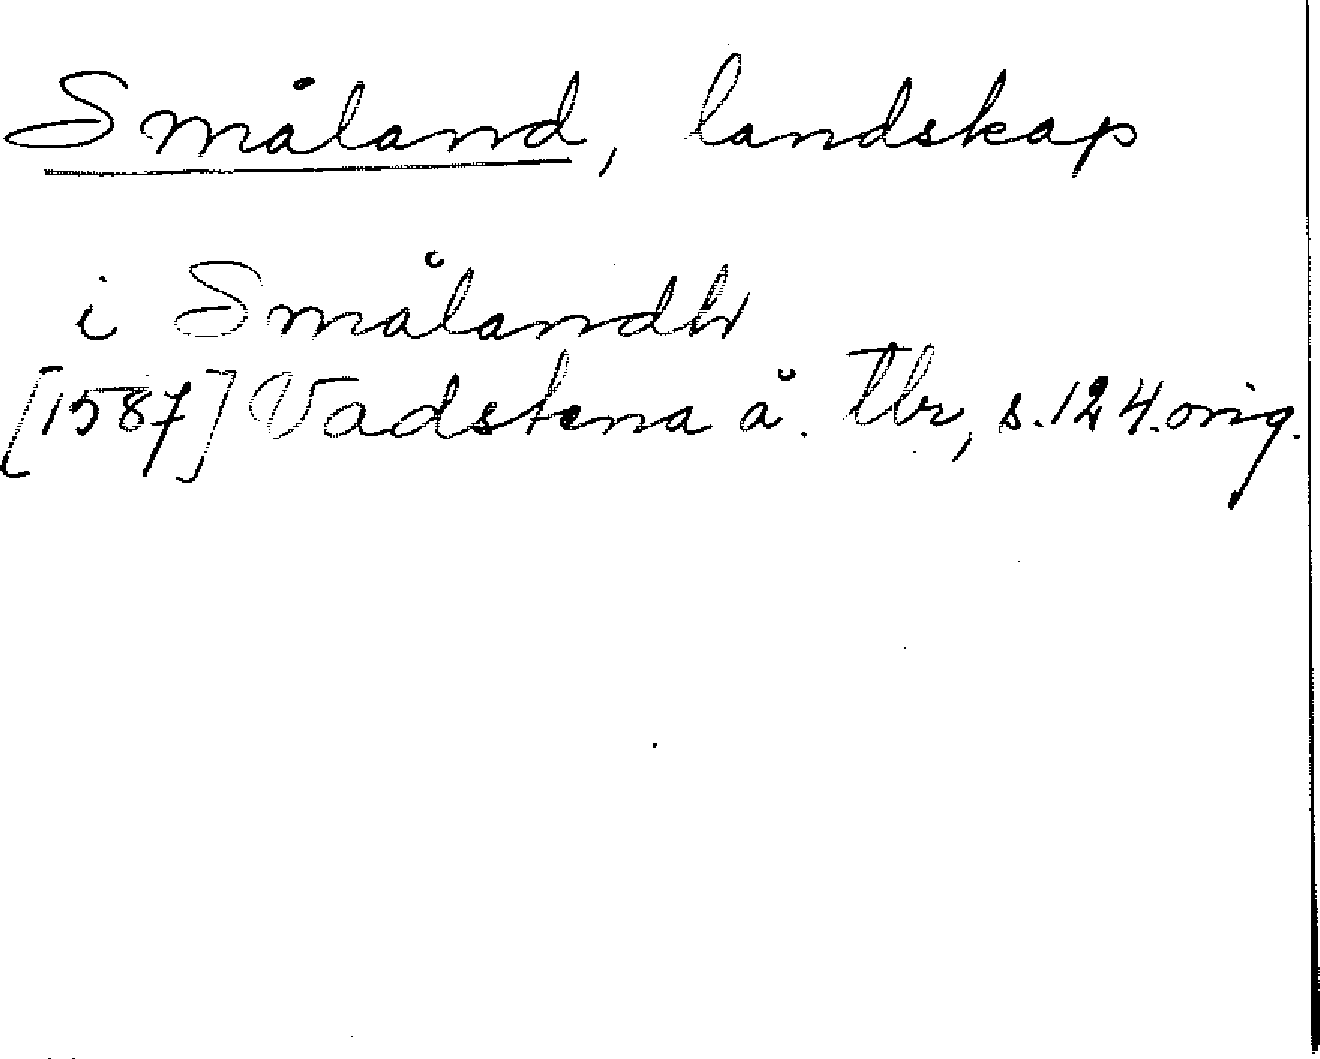 Småland, landskap
i Smålandh
[1587] Vadstena ä. Tbr, s. 124. orig.